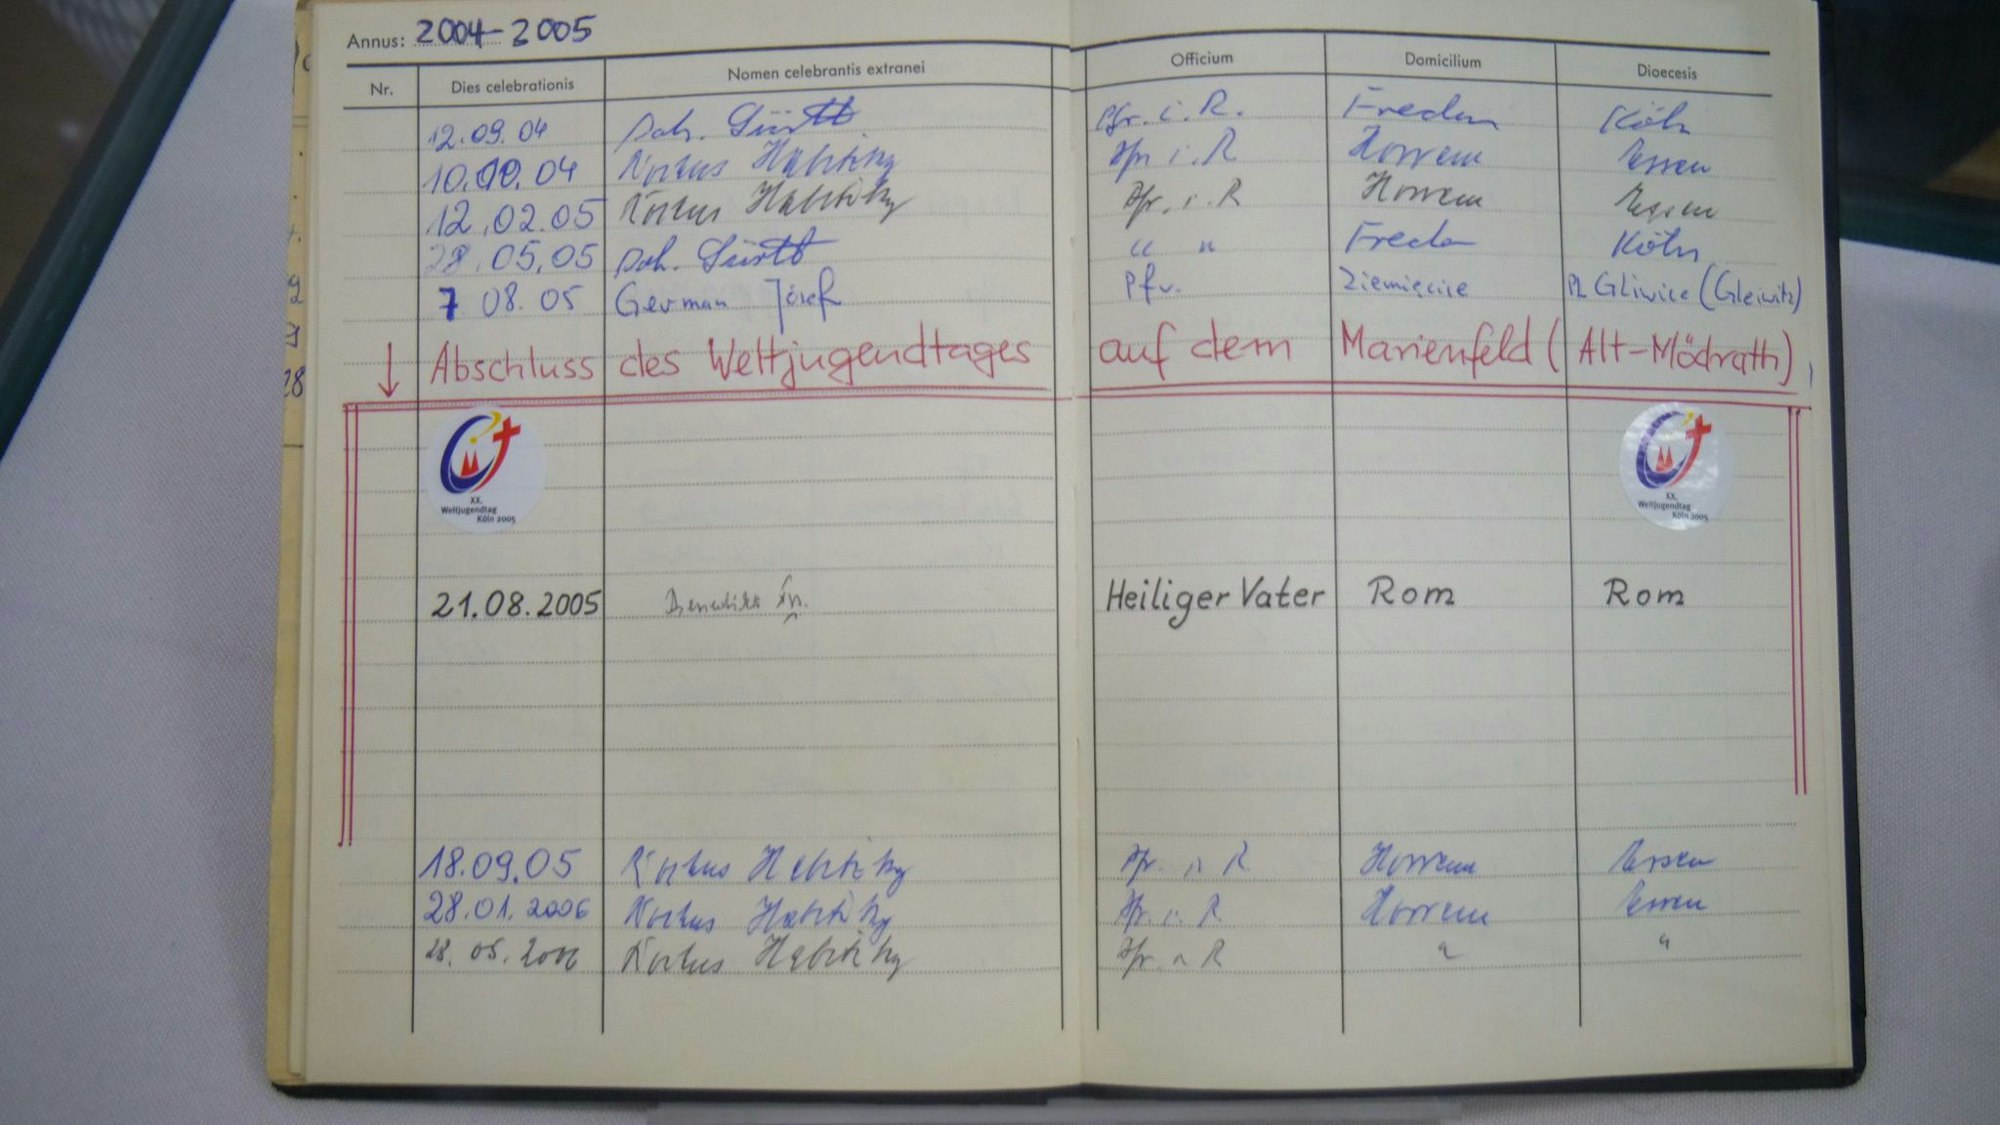 Annus: 2004-2005
Nr. Dies celebrationis Nomen celebrantis extranei Officium Domicilium Dioecesis
12.09.04 Joh. Pfr. i. R. Köln
10.10.04 Pfr. i. R Horrem Essen
12.02.05 Pfr. i. R Horrem Essen
28.05.05 Joh. " " Köln
7 08. 05 German Józef Pfr. Ziemięcice PL Gliwice (Gleiwitz)
↓ Abschluss des Weltjugendtages auf dem Marienfeld (Alt-Mödrath)
XX.
Weltjugendtag
Köln 2005
XX.
Weltjugendtag
Köln 2005
21.08.2005 Heiliger Vater Rom Rom
18.09.05 Pfr. i. R Horrem Essen
28.01.2006 Pfr. i. R. Horrem Essen
28.05.2006 Pfr. i. R " "